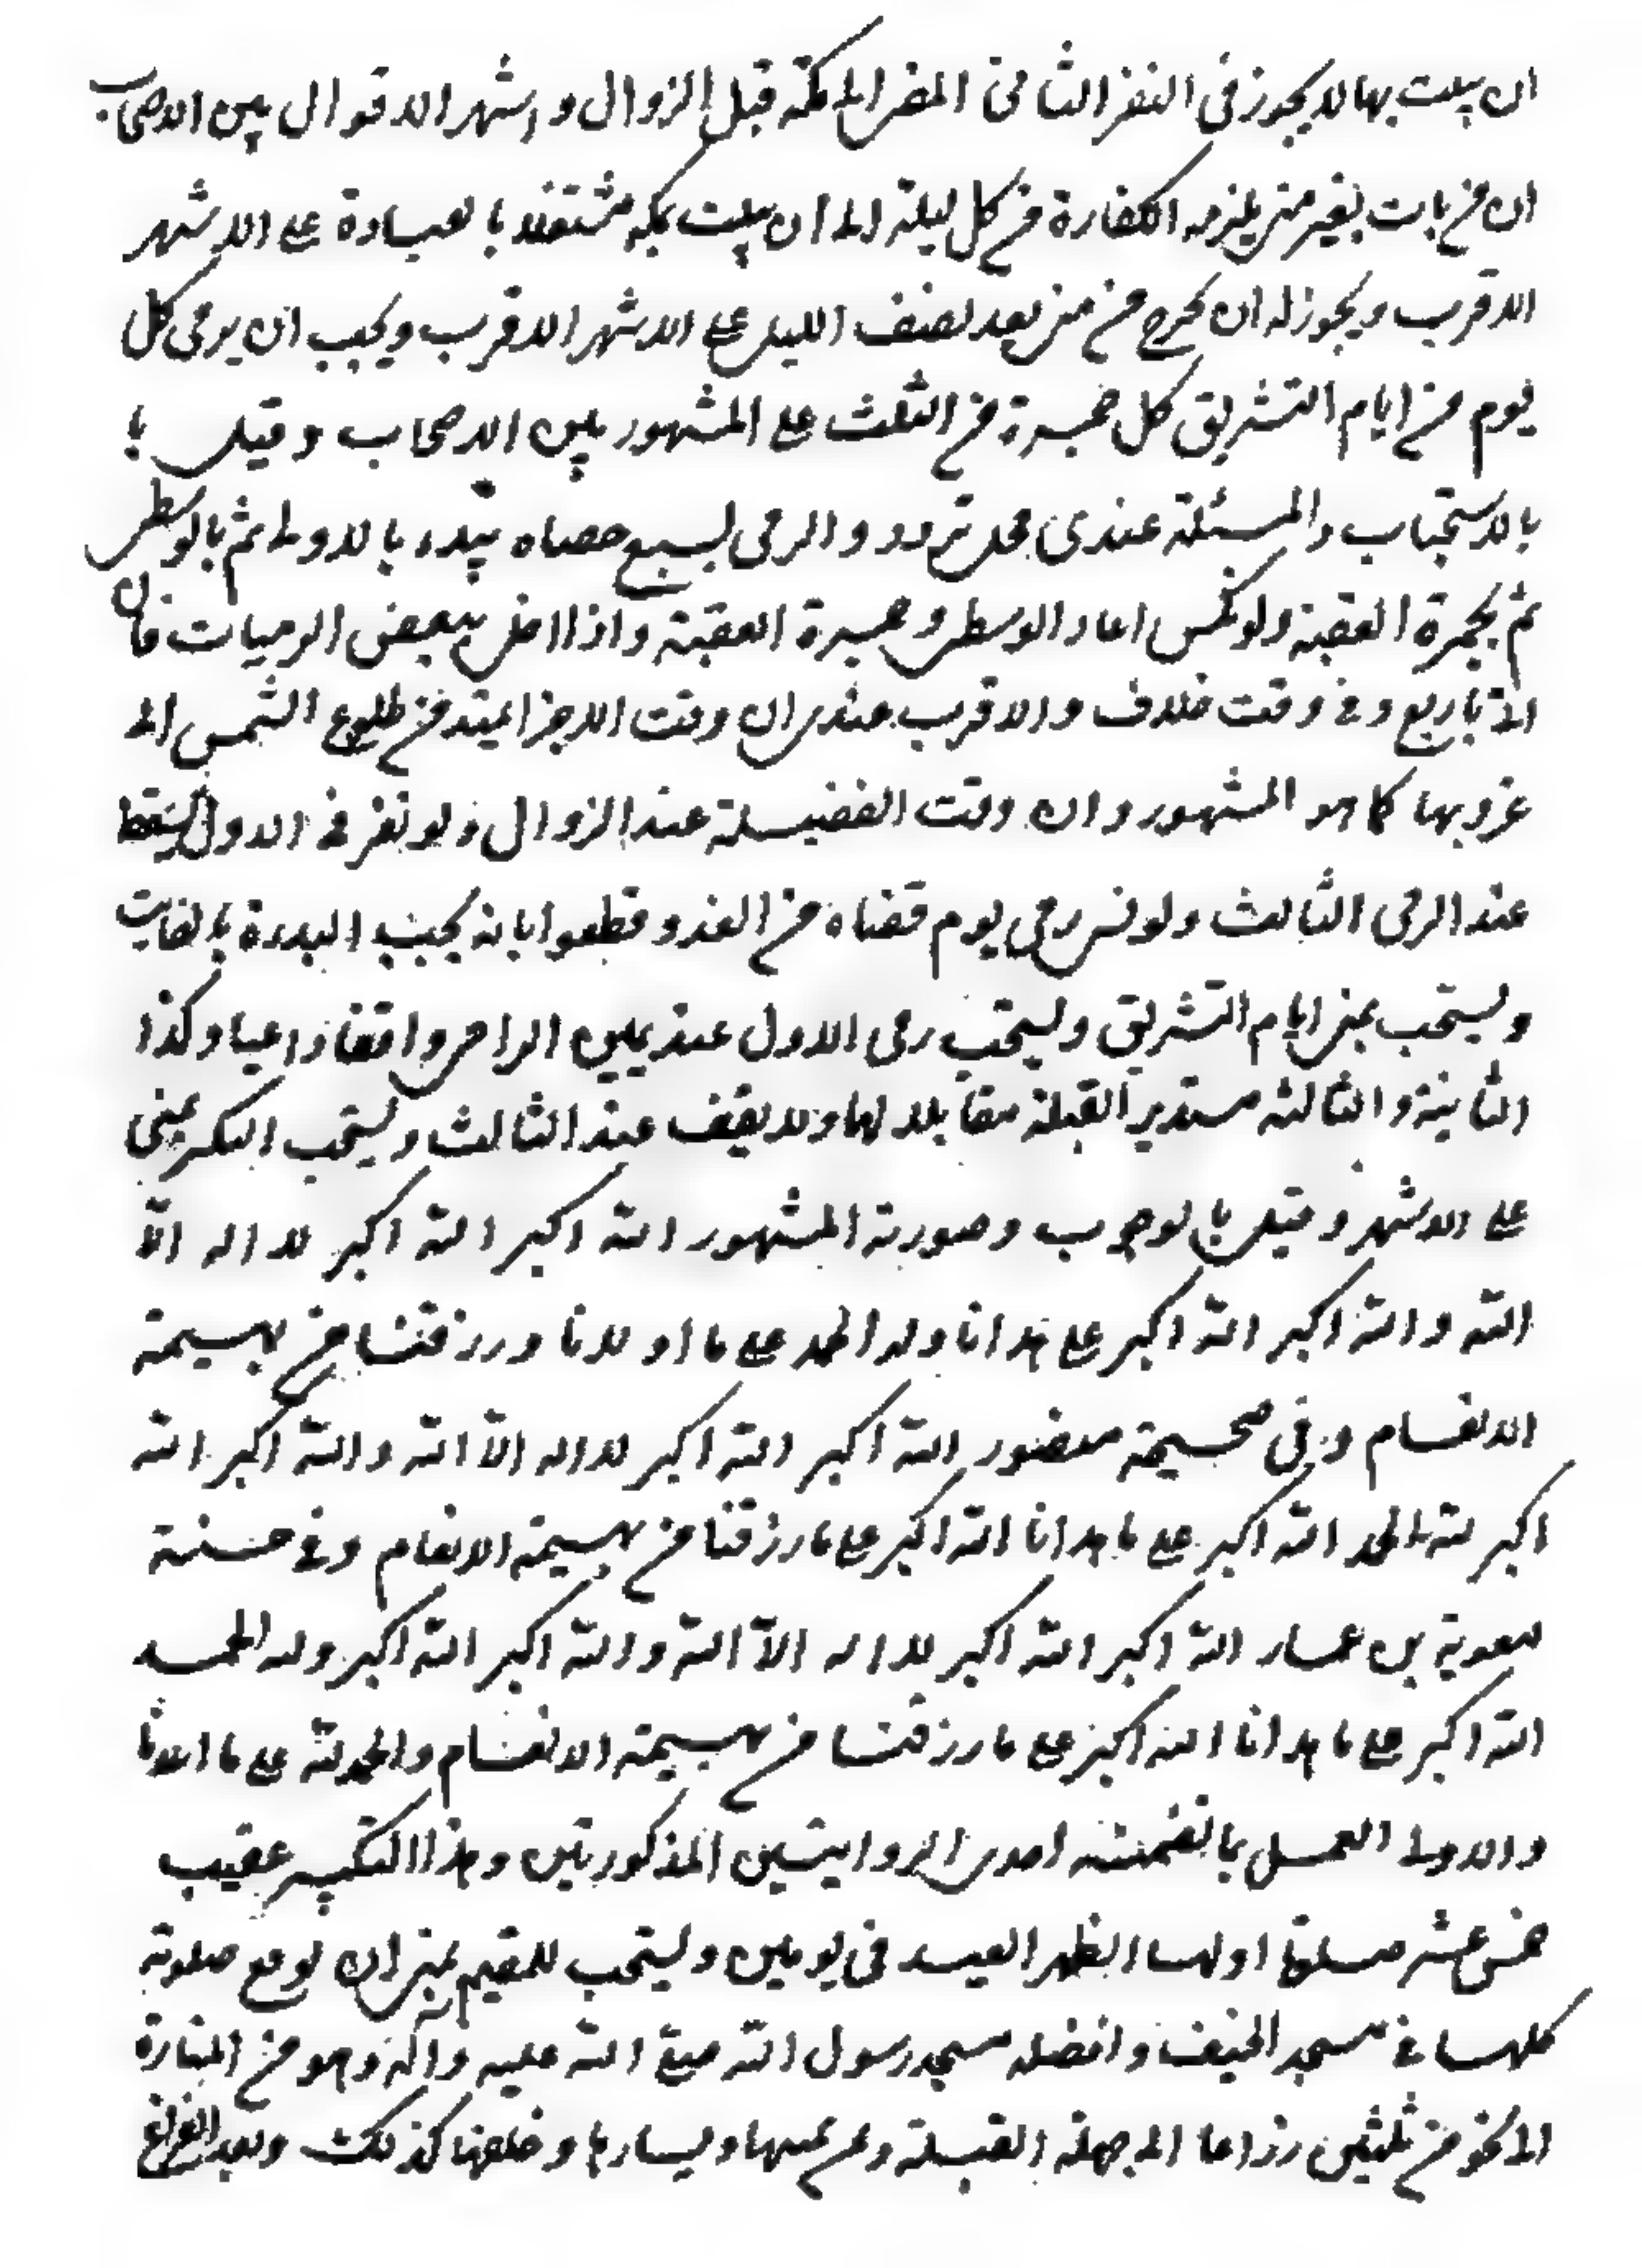 ان يبيت بها لا يجوز في النفر الثاني المضي الى مكة قبل الزوال واشهر الاقوال بين الاصحاب
ان من بات بغير منى يلزمه الكفارة من كل ليلة الا ان يبيت بمكة مشتغلا بالعبادة على الاشهر
الاقرب ويجوز له ان يخرج من منى بعد نصف الليل على الاشهر الاقرب ويجب ان يرمي كل
يوم من ايام التشريق كل جمرة من الثلث على المشهور بين الاصحاب وقيل با
بالاستحباب والمسئلة عندي محل تردد والرمي بسبع حصاه يبتدء بالاولى ثم بالوسطى
ثم بجمرة العقبة ولو نكس اعاد الوسطى وجمرة العقبة واذا اخل ببعض الرميات فان
اتى باربع وفي وقت خلاف والاقرب عندي ان وقت الاجزا يمتد من طلوع الشمس الى
غروبها كما هو المشهور وان وقت الفضيلة عند الزوال ولو نفر في الاول
عند الرمي الثالث ولو نسي رمي يوم قضاه من الغد وقطعوا بانه يجب البدءة بالفايت
ويستحب بمنى ايام التشريق ويستحب رمي الاول عند يمين الرامي واقفا داعيا وكذا
الثانية والثالثه مستدبر القبلة مقابلا لها ولا يقف عند الثالث ويستحب التكبر بمنى
على الاشهر وقيل بالوجوب وصورته المشهور الله اكبر الله اكبر لا اله الا
الله والله اكبر الله اكبر على هدانا وله الحمد على ما اولانا ورزقنا من بهيمة
الانعام وفي صحيحة منصور الله اكبر الله اكبر لا اله الا الله والله اكبر الله
اكبر لله الحمد الله اكبر على ما هدانا الله اكبر على ما رزقنا من بهيمة الانعام وفي حسنة
معوية بن عمار الله اكبر الله اكبر لا اله الا الله والله اكبر الله اكبر وله الحمد
الله اكبر على ما هدانا الله اكبر على ما رزقنا من بهيمة الانعام والحمد لله على ما ابلانا
والاولى العمل بما تضمنته احدى الروايتين المذكورتين وهذا التكبير عقيب
خمس عشر صلوة اولها الظهر العيد في يومين ويستحب للمقيم بمنى ان يوقع صلوته
كلها في مسجد الخيف وافضله مسجد رسول الله صلى الله عليه وآله وهو من المنارة
الى نحو من ثلثين ذراعا الى جهة القبلة وعن يمينها ويسارها وخلفها كذلك وبعد الفراغ